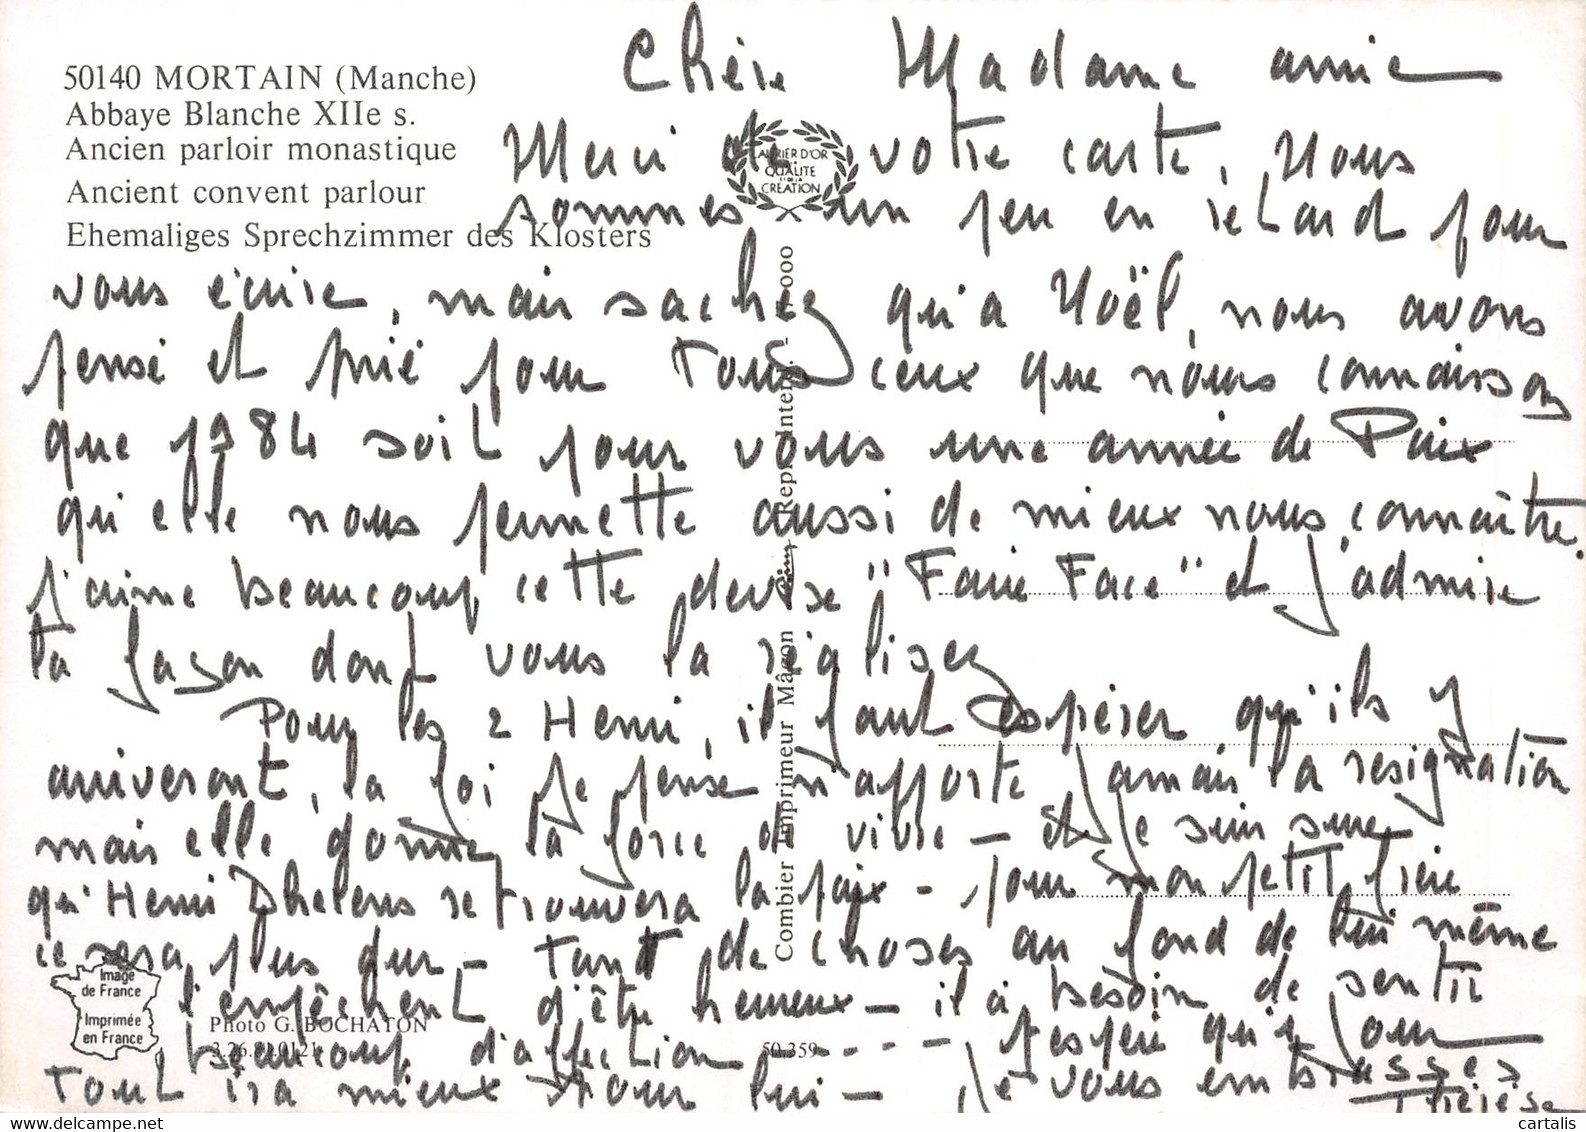 50140 MORTAIN (Manche)
Abbaye Blanche XIIe s.
Ancien parloir monastique
Ancient convent parlour
Ehemaliges Sprechzimmer des Klosters
LAURIER D'OR
DE LA
QUALITE
ET DE LA
CREATION
Chère Madame amie
Merci de votre carte, Nous
sommes un peu en retard pour
vous écrire, mais sachez qu'à Noël, nous avons
pensé et prié pour Tous ceux que nous connaissons
que 1984 soit pour vous une année de Paix
qu'elle nous permette aussi de mieux nous connaître.
J'aime beaucoup cette devise "Faire Face" et j'admire
la façon dont vous la réalisez
Pour les 2 Henri, il faut espérer qu'ils y
arriveront, la foi je pense n'apporte jamais la resignation
mais elle donne la force de vivre - et je suis sure
qu'Henri retrouvera la paix - pour mon petit frère
ce sera plus dur - tant de choses au fond de lui même
l'empêchent d'être heureux - il a besoin de sentir
beaucoup d'affection - - - - J'espère qu'1 jour
Tout ira mieux pour lui - Je vous embrasses
Thérèse
Combier Imprimeur Mâcon
Image
de France
Imprimée
en France
Photo G. BOCHATON
50.359
cartalis